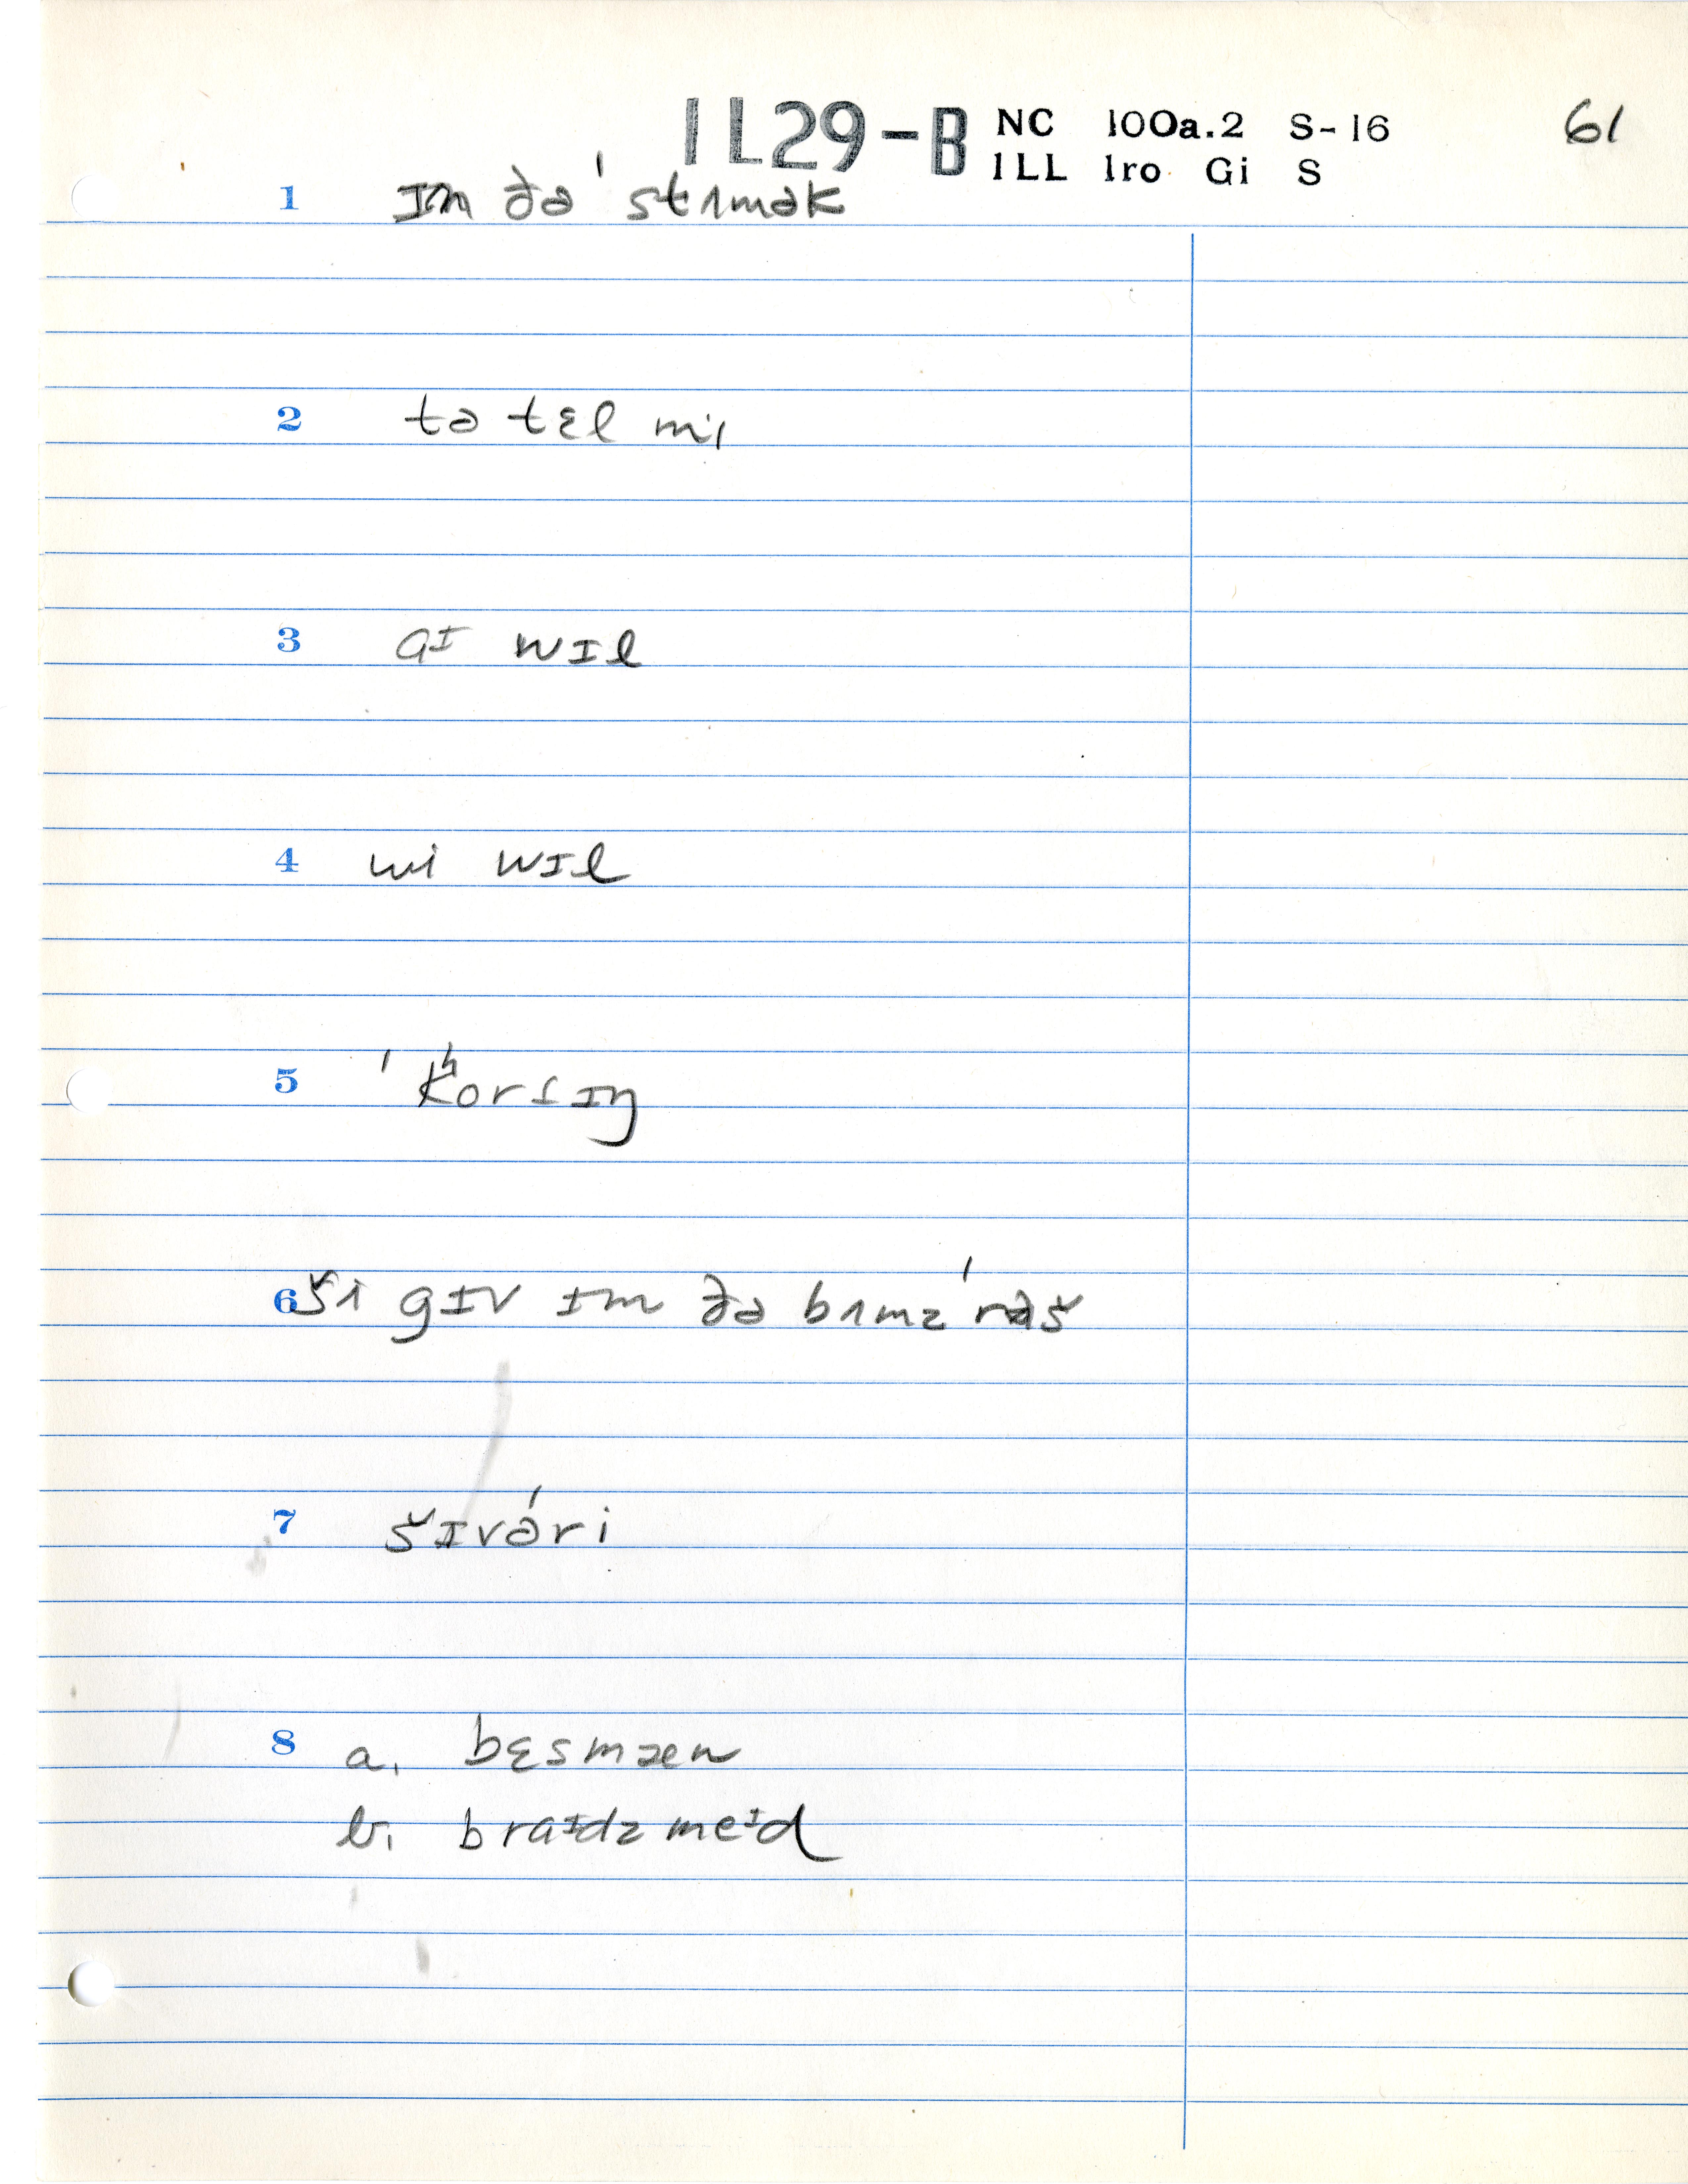 1L29-B NC 100a.2 S-16 61
ILL Iro Gi S
1 ɪn ðə ˈstʌmək
2 tə tɛl mi
3 aɪ wɪl
4 wi wɪl
5 ˈkʰorsɪŋ
6 ši gɪv ɪm ðə bʌmzˈrəš
7 šɪvə́ri
8 a. bɛsmæn
b. braɪdzmeɪd